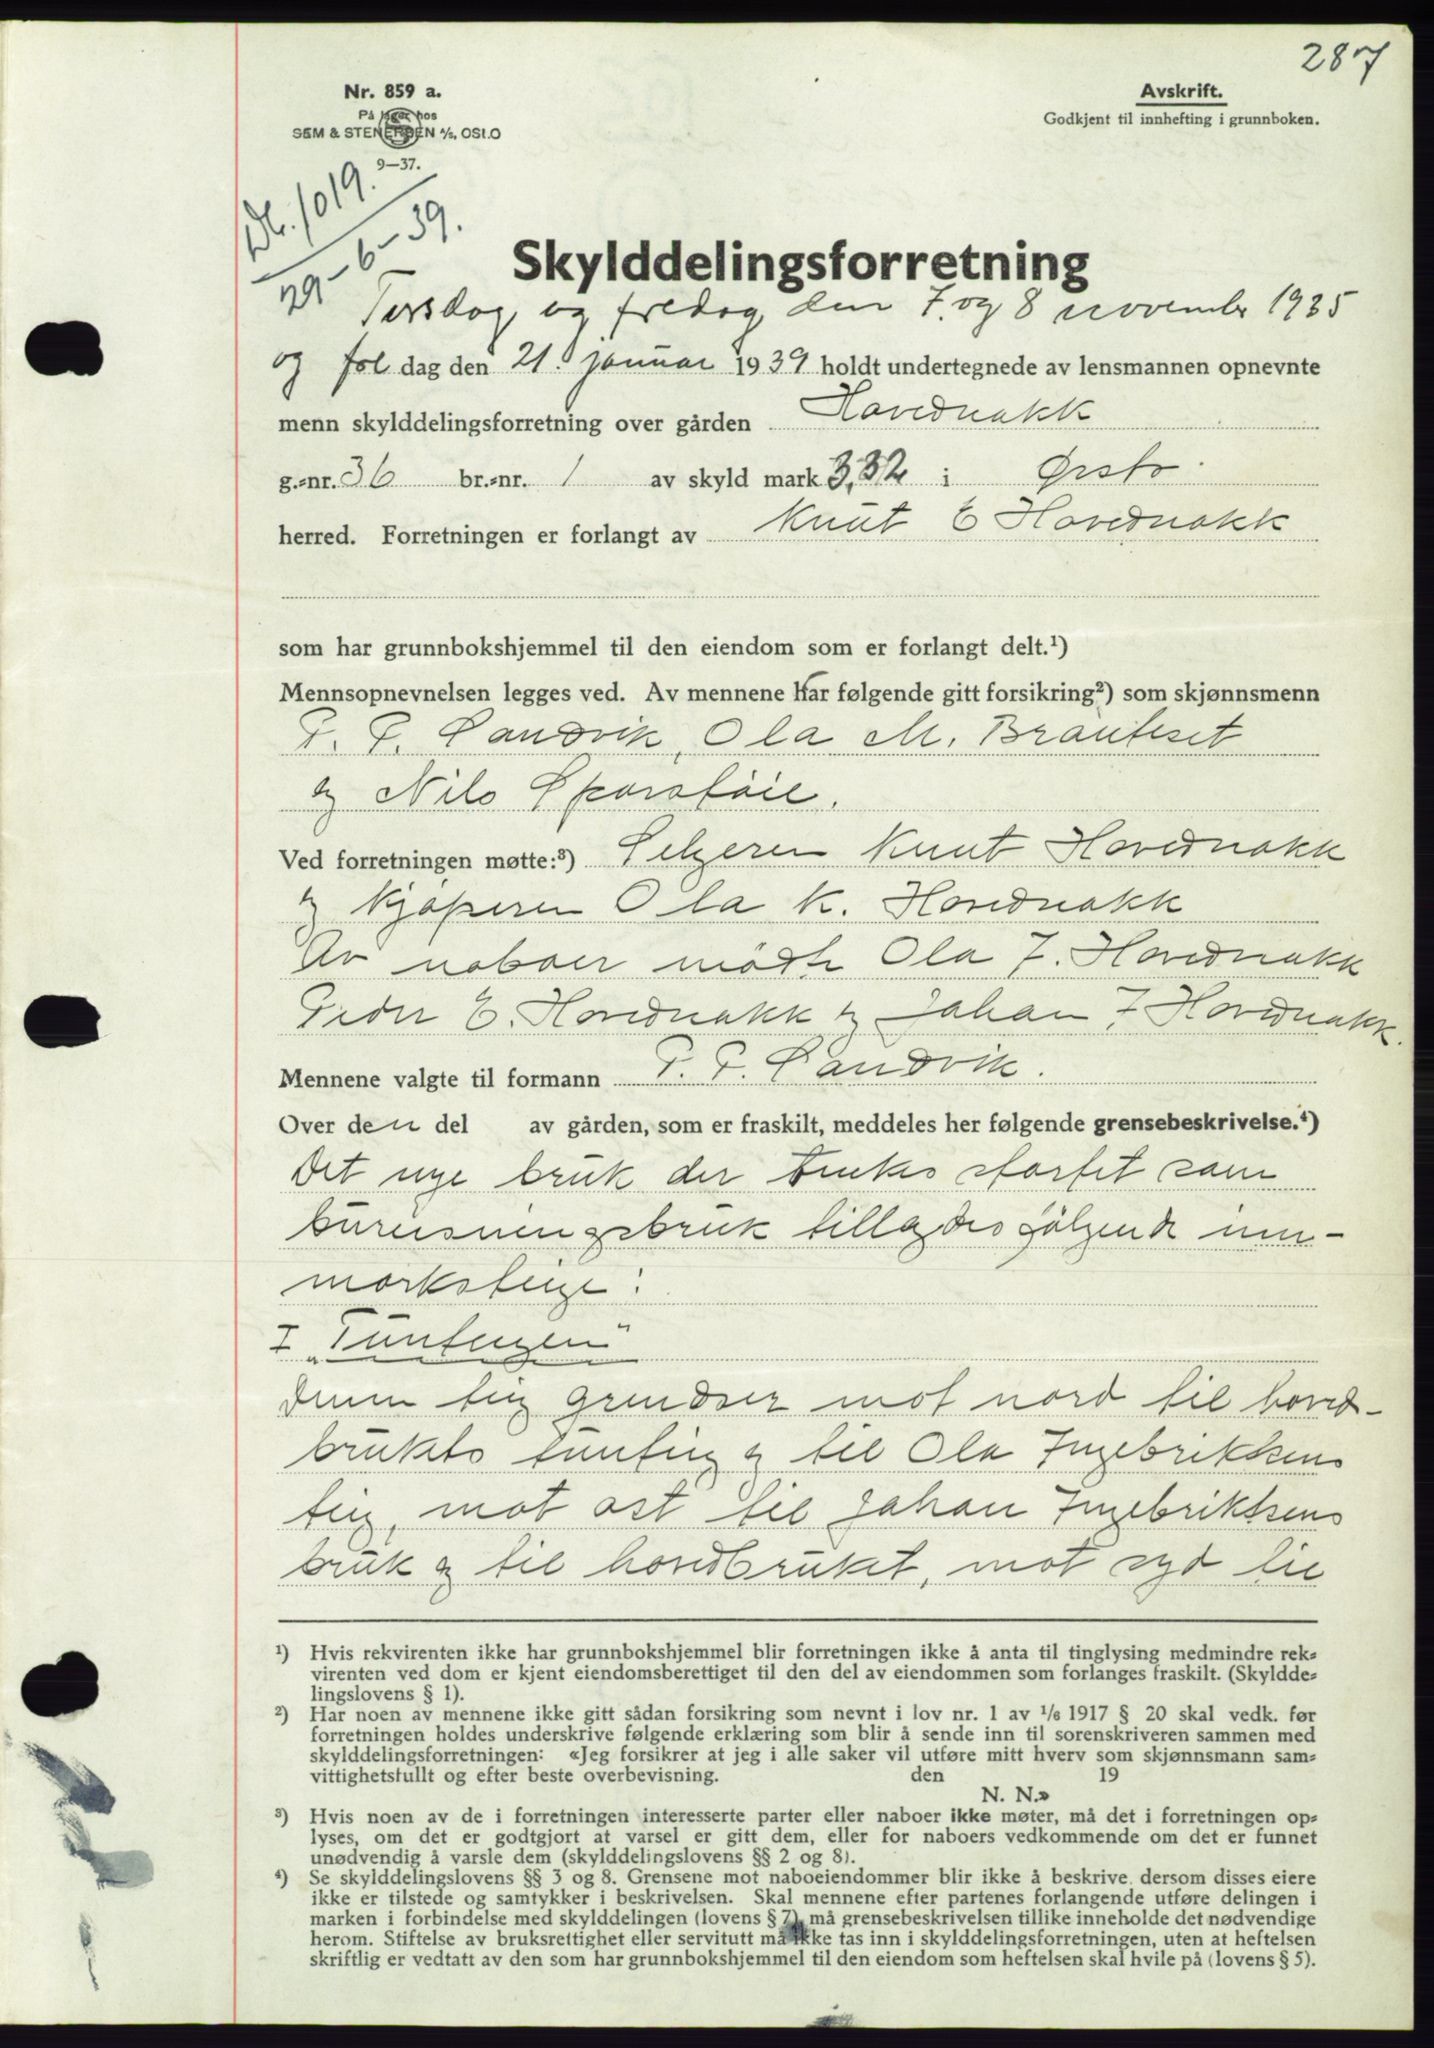 287
Nr. 859 a.
På lager hos
SEM & STENERSEN A/S, OSLO
9—37.
Avskrift.
Godkjent til innhefting i grunnboken.
Db. 1019.
29-6-39.
Skylddelingsforretning
Torsdag og fredag den 7. og 8 november 1935
og fol dag den 21. januar 1939 holdt undertegnede av lensmannen opnevnte
menn skylddelingsforretning over gården Hovednakk
g.=nr. 36 br.=nr. 1 av skyld mark 3,32 i Ørsta.
herred. Forretningen er forlangt av Knut E Hovednakk
som har grunnbokshjemmel til den eiendom som er forlangt delt.¹)
Mennsopnevnelsen legges ved. Av mennene har følgende gitt forsikring²) som skjønnsmenn
P. P. Sandvik, Ola M. Brauteset
og Nils Sporstøil.
Ved forretningen møtte:³) Selgeren Knut Hovednakk
og kjøperen Ola K. Hovednakk
Av naboer mødte Ola I. Hovednakk
Peder E. Hovednakk og Johan I Hovednakk.
Mennene valgte til formann P. P. Sandvik.
Over den del av gården, som er fraskilt, meddeles her følgende grensebeskrivelse.⁴)
Det nye bruk der tenkes startet som
bureisningsbruk tillegdes følgende inn-
marksteige:
I „Tunteigen"
Denne teig grendser mot nord til hoved-
brukets tunteig og til Ola Ingebriktsens
teig, mot øst til Johan Ingebriktsens
bruk og til hovedbruket, mot syd til
¹) Hvis rekvirenten ikke har grunnbokshjemmel blir forretningen ikke å anta til tinglysing medmindre rek=
virenten ved dom er kjent eiendomsberettiget til den del av eiendommen som forlanges fraskilt. (Skyldde=
lingslovens § 1).
²) Har noen av mennene ikke gitt sådan forsikring som nevnt i lov nr. 1 av 1/6 1917 § 20 skal vedk. før
forretningen holdes underskrive følgende erklæring som blir å sende inn til sorenskriveren sammen med
skylddelingsforretningen: «Jeg forsikrer at jeg i alle saker vil utføre mitt hverv som skjønnsmann sam=
vittighetsfullt og efter beste overbevisning. den 19
N. N.»
³) Hvis noen av de i forretningen interesserte parter eller naboer ikke møter, må det i forretningen op=
lyses, om det er godtgjort at varsel er gitt dem, eller for naboers vedkommende om det er funnet
unødvendig å varsle dem (skylddelingslovens §§ 2 og 8).
⁴) Se skylddelingslovens §§ 3 og 8. Grensene mot naboeiendommer blir ikke å beskrive, dersom disses eiere
ikke er tilstede og samtykker i beskrivelsen. Skal mennene efter partenes forlangende utføre delingen i
marken i forbindelse med skylddelingen (lovens § 7), må grensebeskrivelsen tillike inneholde det nødvendige
herom. Stiftelse av bruksrettighet eller servitutt må ikke tas inn i skylddelingsforretningen, uten at heftelsen
skriftlig er vedtatt av den som har grunnbokshjemmel til den eiendom som heftelsen skal hvile på (lovens § 5).